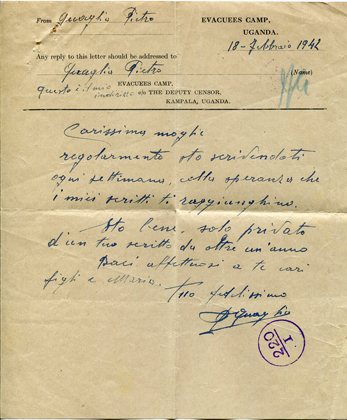 From Quaglia Pietro
EVACUEES CAMP,
UGANDA.
18-febbraio 1942
Any reply to this letter should be addressed to
Quaglia Pietro (Name)
EVACUEES CAMP,
questo è il mio indirizzo c/o THE DEPUTY CENSOR,
KAMPALA, UGANDA.
Carissima moglie
regolarmente sto scrivendoti
ogni settimana, colla speranza che
i miei scritti ti raggiunghino.
Sto bene, solo privato
d'un tuo scritto da oltre un'anno
Baci affettuosi a te cari
figli e Maria.
Tuo fedelissimo
PQuaglia
I/220